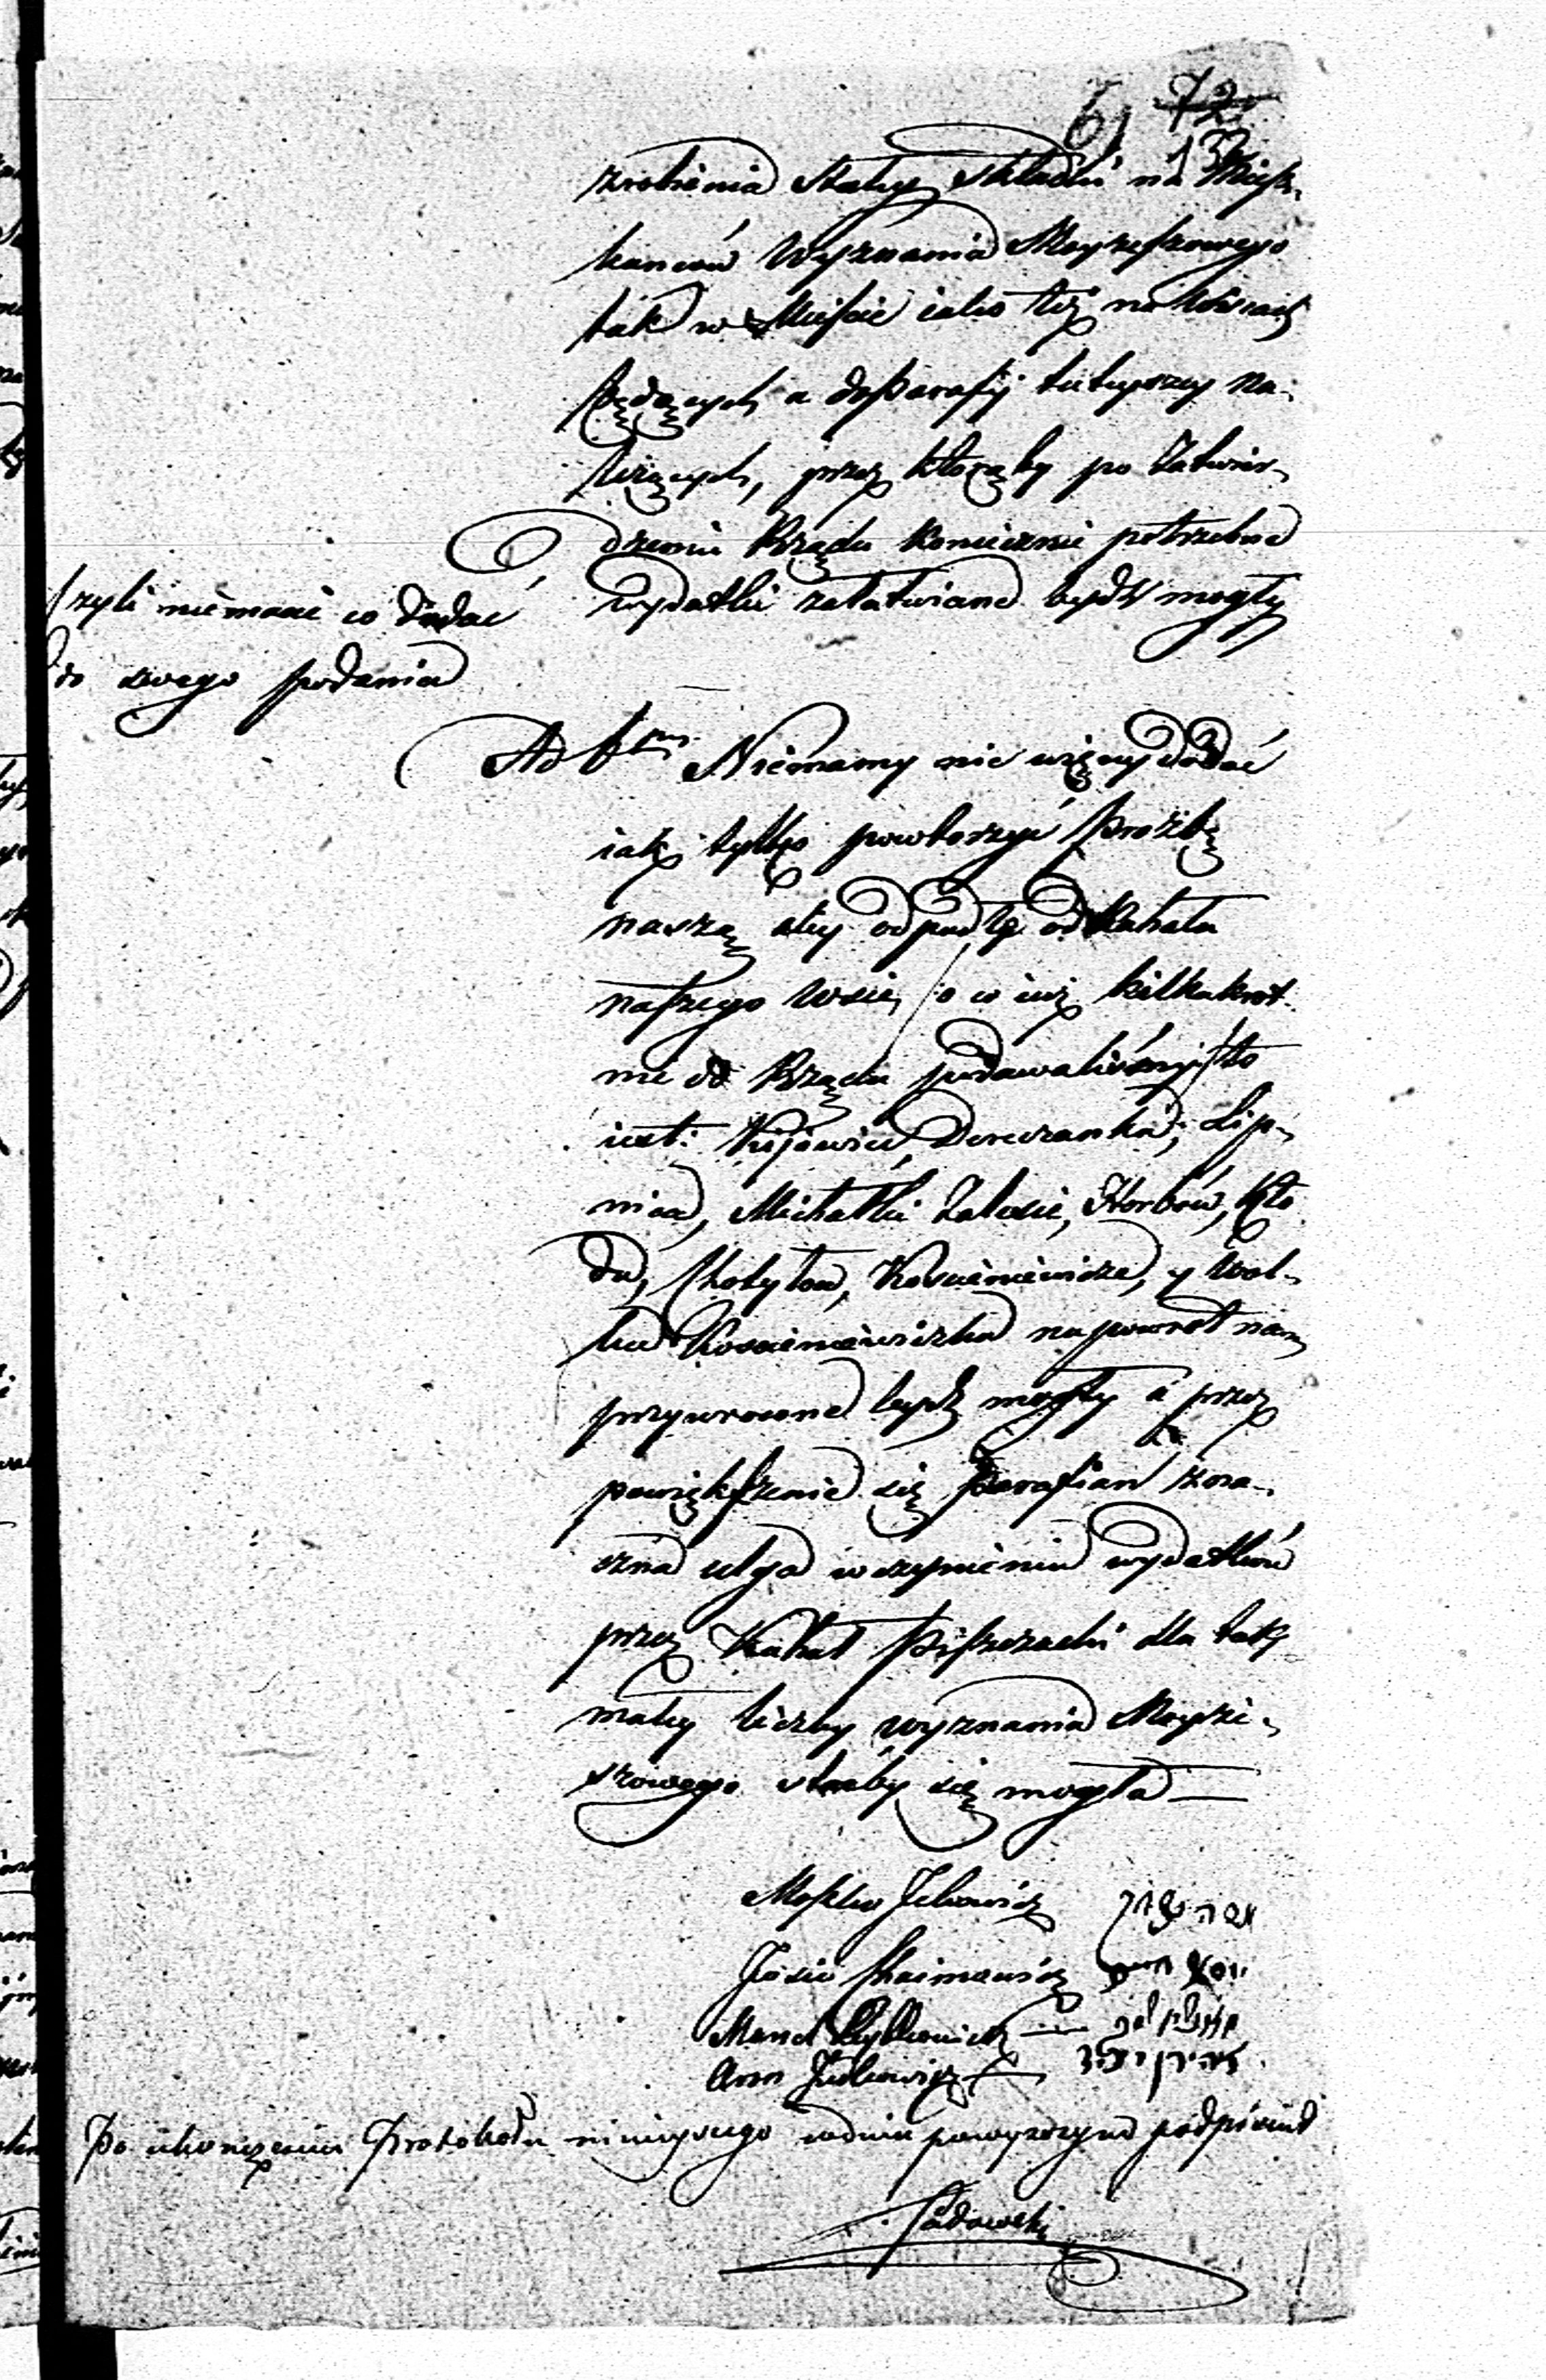 61 72
132
zrobienia Stałey składki na Miesz-
kańców Wyznania Moyżeszowego
tak w Mieście iako też na Wsiach
będących a do Parafij tuteyszey na-
leżących, przez którąby po Zatwier-
dzeniu Rządu koniecznie potrzebne
wydatki załatwiane bydź mogły
Czyli niemacie co dodać
do swego podania
Ad 6tum Niemamy nic więcey dodać
iak tylko powtorzyć prożbę
naszą aby odpadłe od Kahału
naszego Wsie, o co iuż kilkakrot-
nie do Rządu podawaliśmy, to
iest: Kijowiec, Dereczanka, Lip-
nica, Michałki Zalesie, Horbów, Kło
da, Chotyłow, Kościeniewicze, y Wol-
ka Kościeniewicka napowrót nam
przywrócone bydź mogły a przez
powiększenie się Parafian zna-
czna ulga w czynieniu wydatków
przez Kahał Piszczacki dla tak
małey liczby wyznania Moyże-
szowego staćby się mogła —
Moszko Jckowicz
Josio Chaimowicz
Mendel
Aron Judkowicz
Po ukończeniu Protokołu ninieyszego w dniu powyższym podpisuie
Sadowski